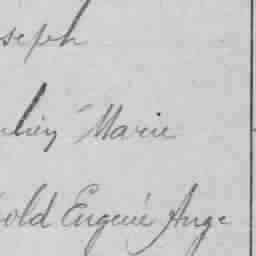 seph
Marie
old Eugène Ange